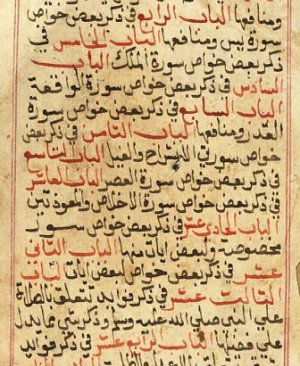 ومنافعها الباب الرابع في ذكر بعض خواص
سورة يس ومنافعها الباب الخامس في
ذكر بعض خواص سورة الملك الباب
السادس في ذكر بعض خواص سورة الواقعة
الباب السابع في ذكر بعض خواص سورة
القدر ومنافعها الباب الثامن في ذكر بعض
خواص سورتي الانشراح والفيل الباب التاسع
في ذكر بعض خواص سورة العصر الباب العاشر
في ذكر بعض خواص سورة الاخلاص والمعوذتين
الباب الحادي عشر في ذكر بعض خواص سور
مخصوصة وبعض ايات منها الباب الثاني
عشر في ذكر بعض خواص لبعض ايات الباب
الثالث عشر في ذكر فوايد تتعلق بالصلاة
علي النبي صلي الله عليه وسلم وذكر شي مما يدل
علي فضلها الباب الرابع عشر في ذكر فوايد